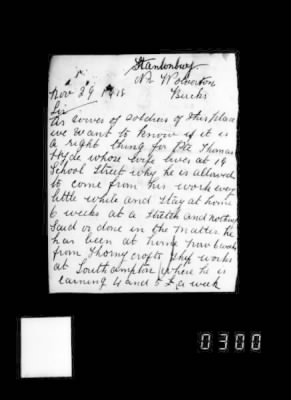 Stantonbury
Nr Wolverton
Bucks
Nov 29 1918
Sir
As wives of soldiers of this place
we want to know if it is
a right thing for Pte Thomas
Hyde whose wife lives at 19
School Street why he is allowed
to come from his work every
little while and stay at home
6 weeks at a stretch and nothing
said or done in the matter he
has been at home now 6 weeks
from Thorny crofts Ship works
at Southampton where he is
earning 4 and 5 £ a week
0300